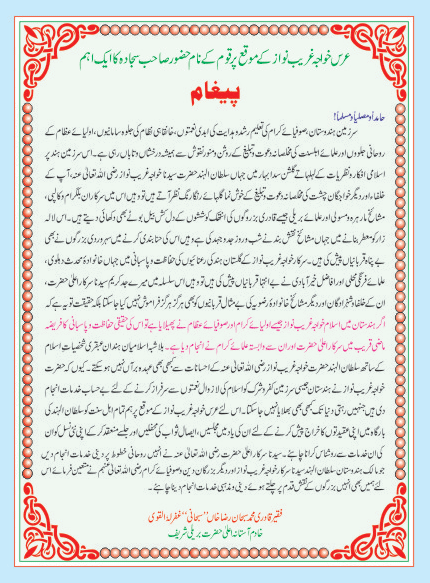 عرس خواجہ غریب نواز کے موقع پر قوم کے نام حضور صاحب سجادہ کا ایک اہم
پیغام
حامداً و مصلیاً و مسلماً!
سرزمین ہندوستان، صوفیائے کرام کی تعلیم رشد و ہدایت کی ابدی نعمتوں، خانقاہی نظام کی جلوہ سامانیوں، اولیائے عظام کے
روحانی جلووں اور علمائے اہلسنت کی مخلصانہ دعوت و تبلیغ کے روشن و منور نقوش سے ہمیشہ درخشاں و تاباں رہی ہے۔ اس سرزمین ہند پر
اسلامی افکار و نظریات کے لہلہاتے گلشن سدا بہار میں جہاں سلطان الہند حضرت سیدنا خواجہ غریب نواز رضی اللہ تعالیٰ عنہ، آپ کے
خلفاء اور دیگر خواجگان چشت کی مخلصانہ دعوت و تبلیغ کے خوش نما گلہائے رنگا رنگ نظر آتے ہیں تو وہیں اس میں سرکاران بلگرام و کالپی،
مشائخ مارہرہ مسولی اور علمائے بریلی جیسے قادری بزرگوں کی انتھک کوششوں کے دل کش بیل بوٹے بھی دکھائی دیتے ہیں۔ اس لالہ
زار کو معطر بنانے میں جہاں مشائخ نقش بند نے شب و روز جدوجہد کی ہے وہیں اس کی حنا بندی کرنے میں سہروردی بزرگوں نے بھی
بے پناہ قربانیاں پیش کی ہیں۔ سرکار خواجہ غریب نواز کے گلستان ہند کی رعنائیوں کی حفاظت و پاسبانی میں جہاں خانوادۂ محدث دہلوی،
علمائے فرنگی محلی اور فاضل خیرآبادی نے بے انتہا قربانیاں پیش کی ہیں تو وہیں اس سلسلہ میں میرے جد کریم سیدنا سرکار اعلیٰ حضرت،
ان کے خلفاء و شہزادگان اور دیگر مشائخ خانوادۂ رضویہ کی بے مثال قربانیوں کو بھی ہرگز ہرگز فراموش نہیں کیا جا سکتا بلکہ حقیقت تو یہ ہے کہ
اگر ہندوستان میں اسلام خواجہ غریب نواز جیسے اولیائے کرام اور صوفیائے عظام نے پھیلایا ہے تو اس کی حقیقی حفاظت و پاسبانی کا فریضہ
ماضی قریب میں سرکار اعلیٰ حضرت اور ان سے وابستہ علمائے کرام نے انجام دیا ہے۔ بلاشبہ اسلامیان ہند ان عبقری شخصیات اسلام
کے ساتھ سلطان الہند حضرت خواجہ غریب نواز رضی اللہ تعالیٰ عنہ کے احسانات سے کبھی بھی عہدہ برآں نہیں ہو سکتے۔ کیوں کہ حضرت
خواجہ غریب نواز نے ہندوستان جیسی سرزمین کفر و شرک کو اسلام کی لازوال نعمتوں سے سرفراز کرنے کے لئے بے حساب خدمات
دی ہیں جنہیں رہتی دنیا تک کبھی بھی بھلایا نہیں جا سکتا۔ اس لئے عرس خواجہ غریب نواز کے موقع پر ہم تمام اہل سنت کو سلطان الہند کی
بارگاہ میں اپنی عقیدتوں کا خراج پیش کرنے کے لئے ان کی یاد میں مجلسیں، ایصال ثواب کی محفلیں اور جلسے منعقد کر کے اپنی نئی نسل کو ان
کی ان خدمات سے روشناس کرانا چاہئے۔ سیدنا سرکار اعلیٰ حضرت رضی اللہ تعالیٰ عنہ نے انہیں روحانی خطوط پر دینی خدمات انجام دیں
جو مالک ہندوستان سلطان الہند سیدنا سرکار خواجہ غریب نواز اور دیگر بزرگان دین و صوفیائے کرام رضی اللہ تعالیٰ عنہم نے متعین فرمائے اس
لئے ہمیں بھی انہیں بزرگوں کے نقش قدم پر چلتے ہوئے دینی و مذہبی خدمات انجام دینا چاہئے۔
فقیر قادری محمد سبحان رضا خاں "سبحانی" غفرلہ القوی
خادم آستانہ اعلیٰ حضرت بریلی شریف